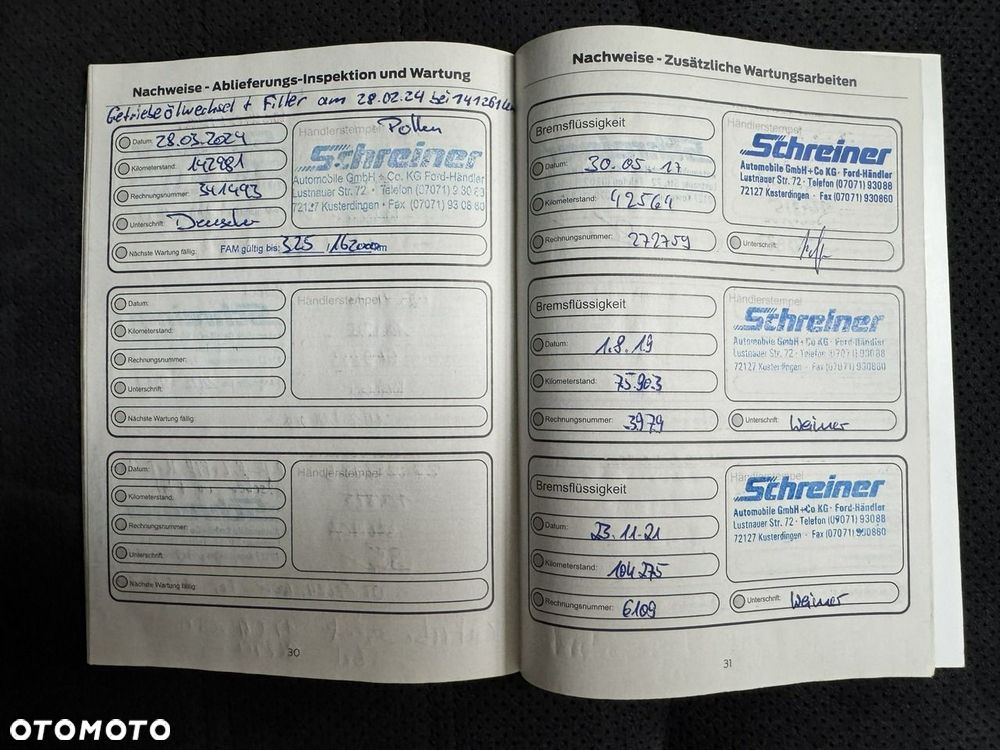 Nachweise - Ablieferungs-Inspektion und Wartung
Getriebeölwechsel + Filter am 28.02.24 bei 141261km
Datum: 28.03.2024
Kilometerstand: 142981
Rechnungsnummer: 341493
Unterschrift:
Nächste Wartung fällig: FAM gültig bis: 3.25 / 162000km
Händlerstempel Pollen
Schreiner
Automobile GmbH + Co. KG Ford-Händler
Lustnauer Str. 72 • Telefon (07071) 9 30 88
72127 Kusterdingen • Fax (07071) 93 08 60
Datum:
Kilometerstand:
Rechnungsnummer:
Unterschrift:
Nächste Wartung fällig:
Händlerstempel
Datum:
Kilometerstand:
Rechnungsnummer:
Unterschrift:
Nächste Wartung fällig:
Händlerstempel
30
Nachweise - Zusätzliche Wartungsarbeiten
Bremsflüssigkeit
Datum: 30.05.17
Kilometerstand: 42564
Rechnungsnummer: 272759
Händlerstempel
Schreiner
Automobile GmbH + Co KG · Ford-Händler
Lustnauer Str. 72 · Telefon (07071) 93088
72127 Kusterdingen · Fax (07071) 930860
Unterschrift:
Bremsflüssigkeit
Datum: 1.8.19
Kilometerstand: 75.903
Rechnungsnummer: 3979
Händlerstempel
Schreiner
Automobile GmbH + Co KG · Ford-Händler
Lustnauer Str. 72 · Telefon (07071) 93088
72127 Kusterdingen · Fax (07071) 930860
Unterschrift: Weimer
Bremsflüssigkeit
Datum: 23.11.21
Kilometerstand: 104275
Rechnungsnummer: 6109
Händlerstempel
Schreiner
Automobile GmbH + Co KG · Ford-Händler
Lustnauer Str. 72 · Telefon (07071) 93088
72127 Kusterdingen · Fax (07071) 930860
Unterschrift: Weimer
31
OTOMOTO